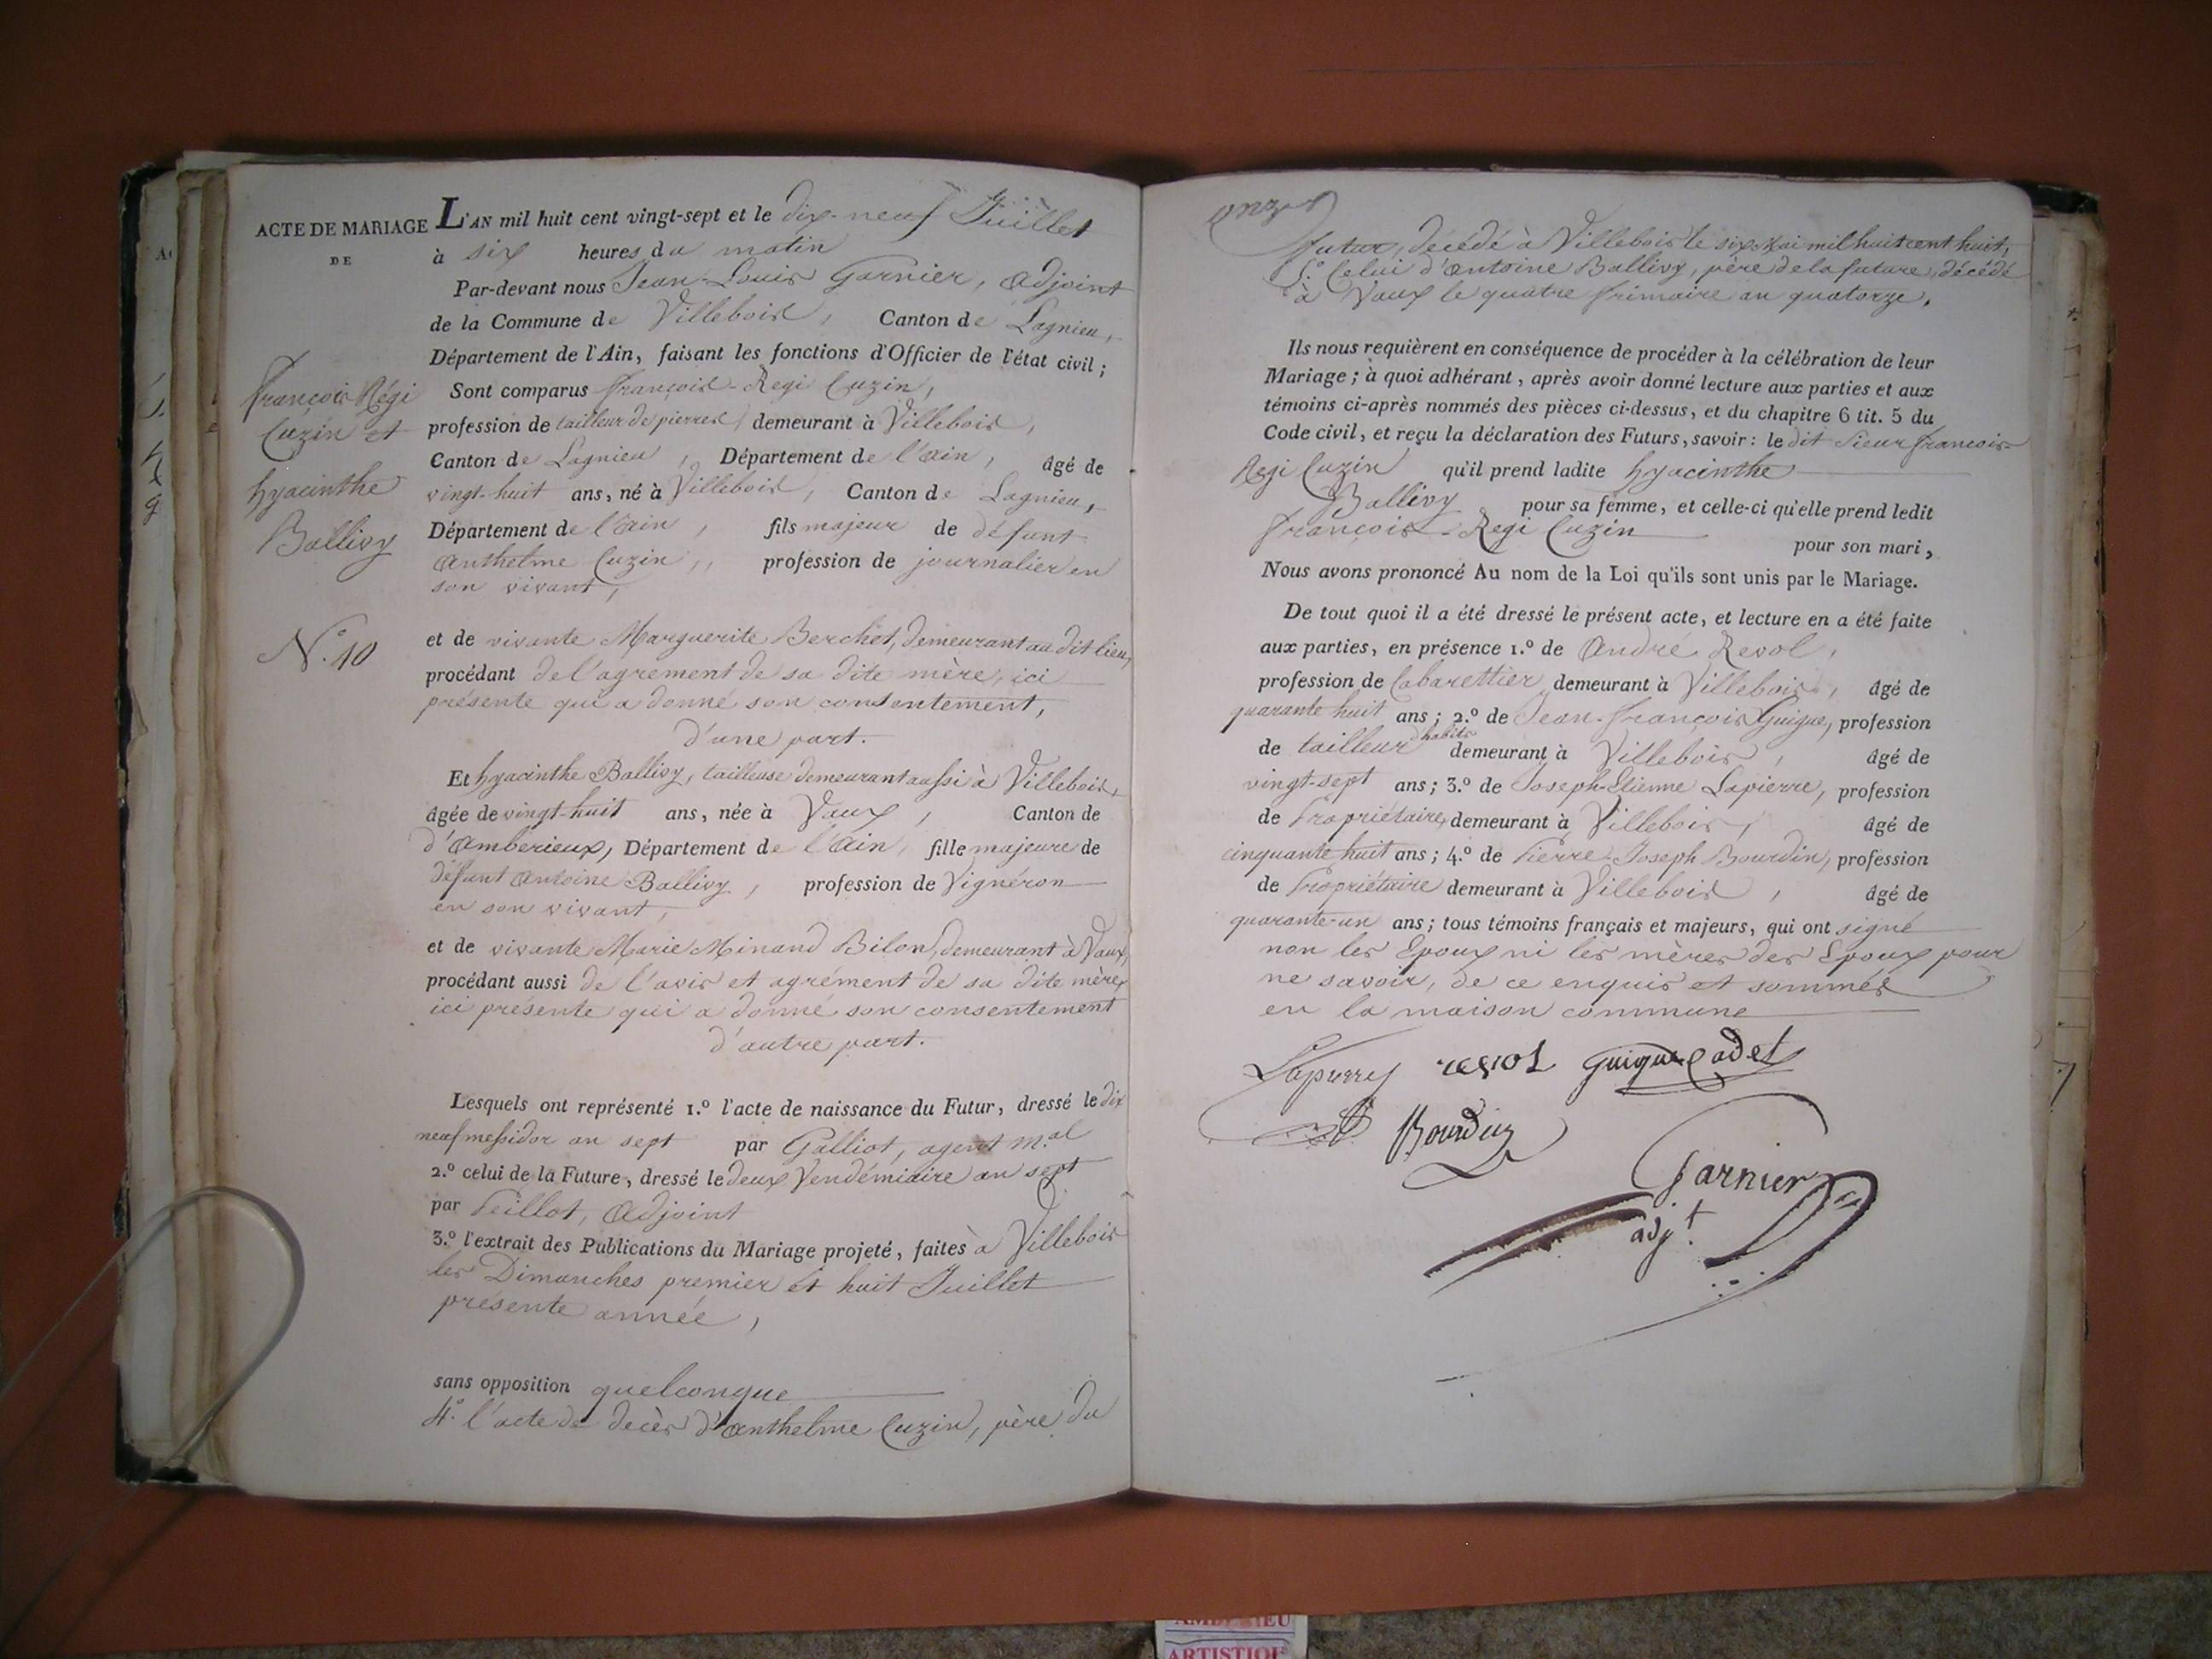 ACTE DE MARIAGE
DE
François Régi
Cuzin et
hyacinthe
Ballivy
N.° 10
L'AN mil huit cent vingt-sept et le dix-neuf Juillet
à six heures du matin
Par-devant nous Jean-Louis Garnier, adjoint
de la Commune de Villebois, Canton de Lagnieu,
Département de l'Ain, faisant les fonctions d'Officier de l'état civil;
Sont comparus françois-Regi Cuzin,
profession de tailleur de pierres, demeurant à Villebois,
Canton de Lagnieu, Département de l'ain, âgé de
vingt-huit ans, né à Villebois, Canton de Lagnieu,
Département de l'ain, fils majeur de défunt
anthelme Cuzin,, profession de journalier en
son vivant,
et de vivante Marguerite Berchet, demeurant au dit lieu,
procédant de l'agrement de sa dite mère, ici
présente qui a donné son consentement,
d'une part.
Et hyacinthe Ballivy, tailleuse demeurant aussi à Villebois,
âgée de vingt-huit ans, née à Vaux, Canton de
d'amberieux, Département de l'ain, fille majeure de
défunt antoine Ballivy, profession de Vignéron
en son vivant,
et de vivante Marie Minand Bilon, demeurant à Vaux,
procédant aussi de l'avis et agrément de sa dite mère,
ici présente qui a donné son consentement
d'autre part.
Lesquels ont représenté 1.° l'acte de naissance du Futur, dressé le dix
neuf messidor an sept par Galliot, agent m.al
2.° celui de la Future, dressé le deux Vendémiaire an sept
par Peillot, adjoint
3.° l'extrait des Publications du Mariage projeté, faites à Villebois
les Dimanches premier et huit Juillet
présente année,
sans opposition quelconque
4.° l'acte de decès d'anthelme Cuzin, père du
onze
futur, décédé à Villebois le six Mai mil huit cent huit,
5.° Celui d'antoine Ballivy, père de la future, décédé
à Vaux le quatre frimaire an quatorze.
Ils nous requièrent en conséquence de procéder à la célébration de leur
Mariage; à quoi adhérant, après avoir donné lecture aux parties et aux
témoins ci-après nommés des pièces ci-dessus, et du chapitre 6 tit. 5 du
Code civil, et reçu la déclaration des Futurs, savoir: le dit Sieur françois-
Regi Cuzin qu'il prend ladite hyacinthe
Ballivy pour sa femme, et celle-ci qu'elle prend ledit
françois-Regi Cuzin pour son mari,
Nous avons prononcé Au nom de la Loi qu'ils sont unis par le Mariage.
De tout quoi il a été dressé le présent acte, et lecture en a été faite
aux parties, en présence 1.° de André Revol,
profession de Cabarettier demeurant à Villebois, âgé de
quarante huit ans; 2.° de Jean-françois Guigue, profession
de tailleur d'habits demeurant à Villebois, âgé de
vingt-sept ans; 3.° de Joseph-Etienne Lapierre, profession
de Propriétaire, demeurant à Villebois, âgé de
cinquante huit ans; 4.° de Pierre-Joseph Bourdin, profession
de Propriétaire demeurant à Villebois, âgé de
quarante-un ans; tous témoins français et majeurs, qui ont signé
non les Epoux ni les mères des Epoux pour
ne savoir, de ce enquis et sommés
en la maison commune
revol Guigue Cadet
Bourdin
Garnier
adj.t
ARTISTIQUE